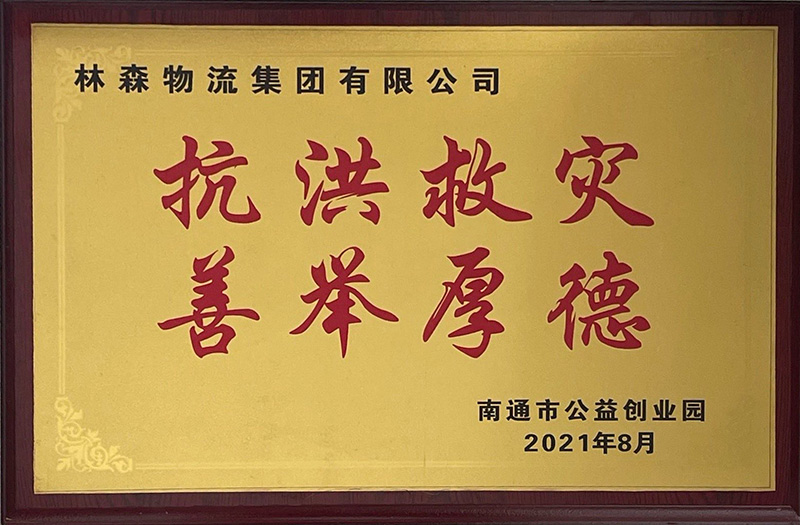 林森物流集团有限公司
抗洪救灾
善举厚德
南通市公益创业园
2021年8月